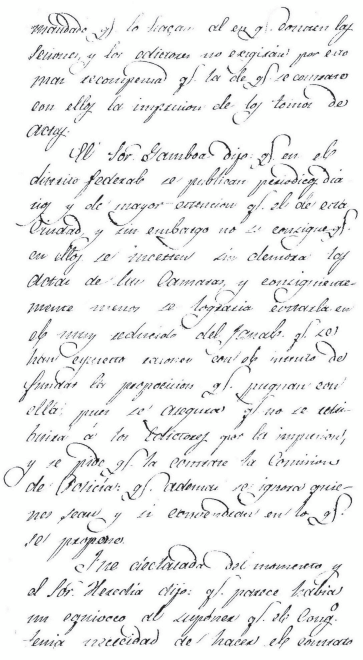 mandado qꝫ. lo hagan al en qꝫ. donen los
Señores, y los editores no exigirán por esto
mas recompensa qꝫ. la de qꝫ. se contrate
con ellos la impresion de los tomos de
actas.
El Sór. Gamboa dijo: qꝫ. en el
distrito federal se publican periodicos dia
rios y de mayor extencion qꝫ. el de esta
Ciudad, y sin embargo no se consigue qꝫ.
en ellos se inserten sin demora las
actas de las Camaras, y consiguiente-
mente menos se lograria evitarla en
el muy reducido del qꝫ. se
han espuesto razones con el intento de
fundar la proposicion qꝫ. pugnan con
ella: pues se asegura qꝫ. no se retri-
buirá á los Editores por la impresion,
y se pide qꝫ. la contrate la Comision
de Policía: qꝫ. ademas se ignora quie-
nes sean y si convendrian en lo qꝫ.
se propone.
Fue declarada del momento y
el Sór. Heredia dijo: qꝫ. parece habia
un equivoco al suponer qꝫ. el Congo.
tenia necesidad de hacer el contrato